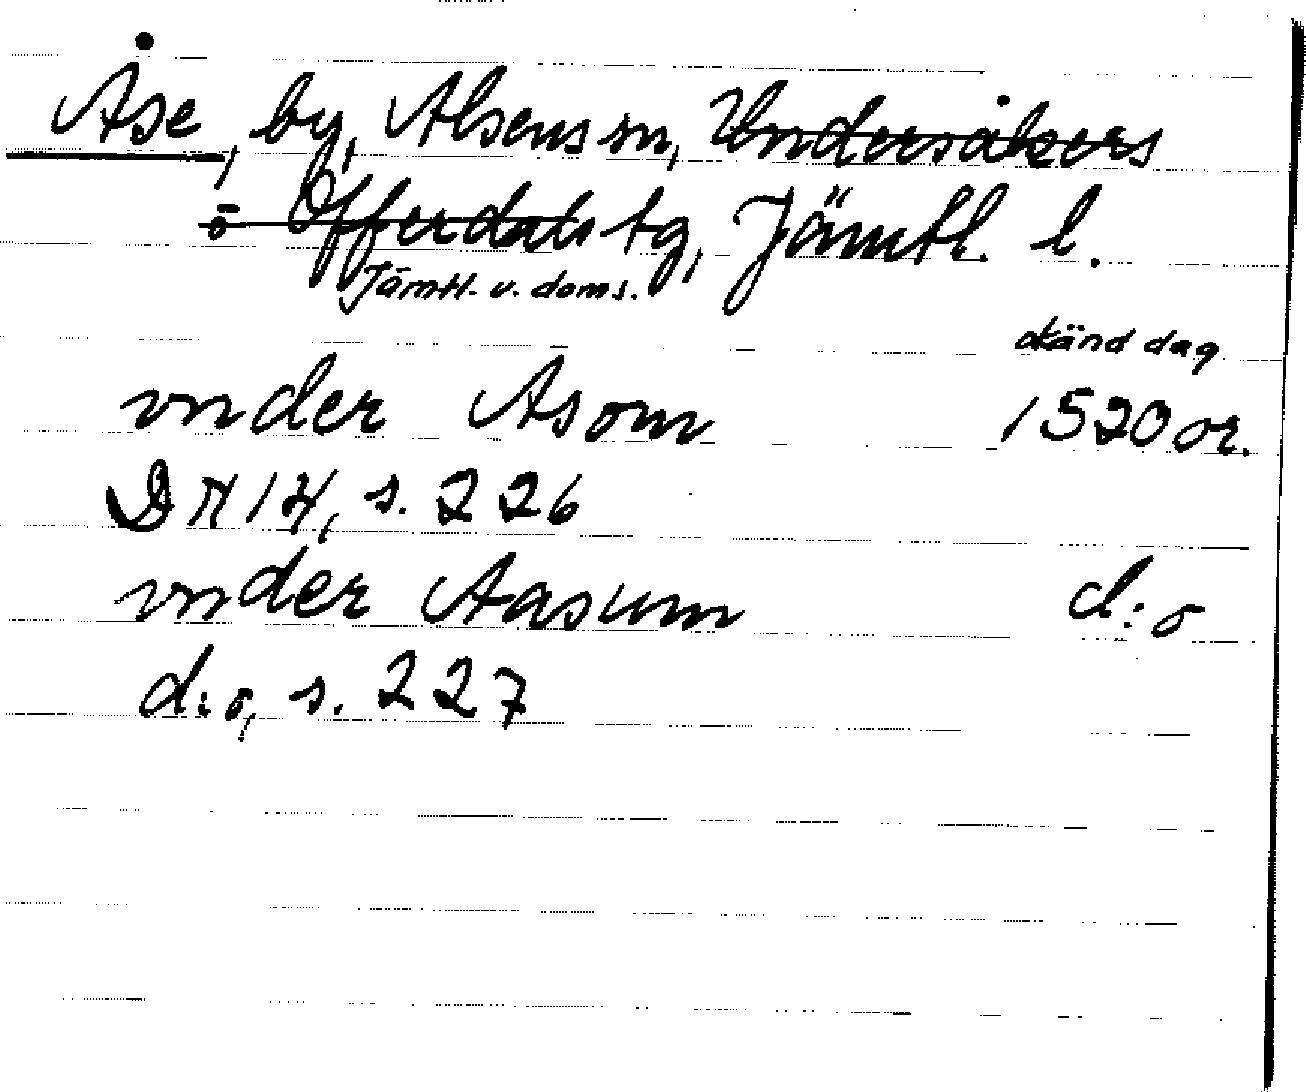 Åse, by, Alsens sn, Undersåkers
o Offerdals tg, Jämtl. l.
Jämtl. v. doms.
okänd dag
vnder Asom 1520 or.
DN 14, s. 226
vnder Aasum d:o
d:o, s. 227